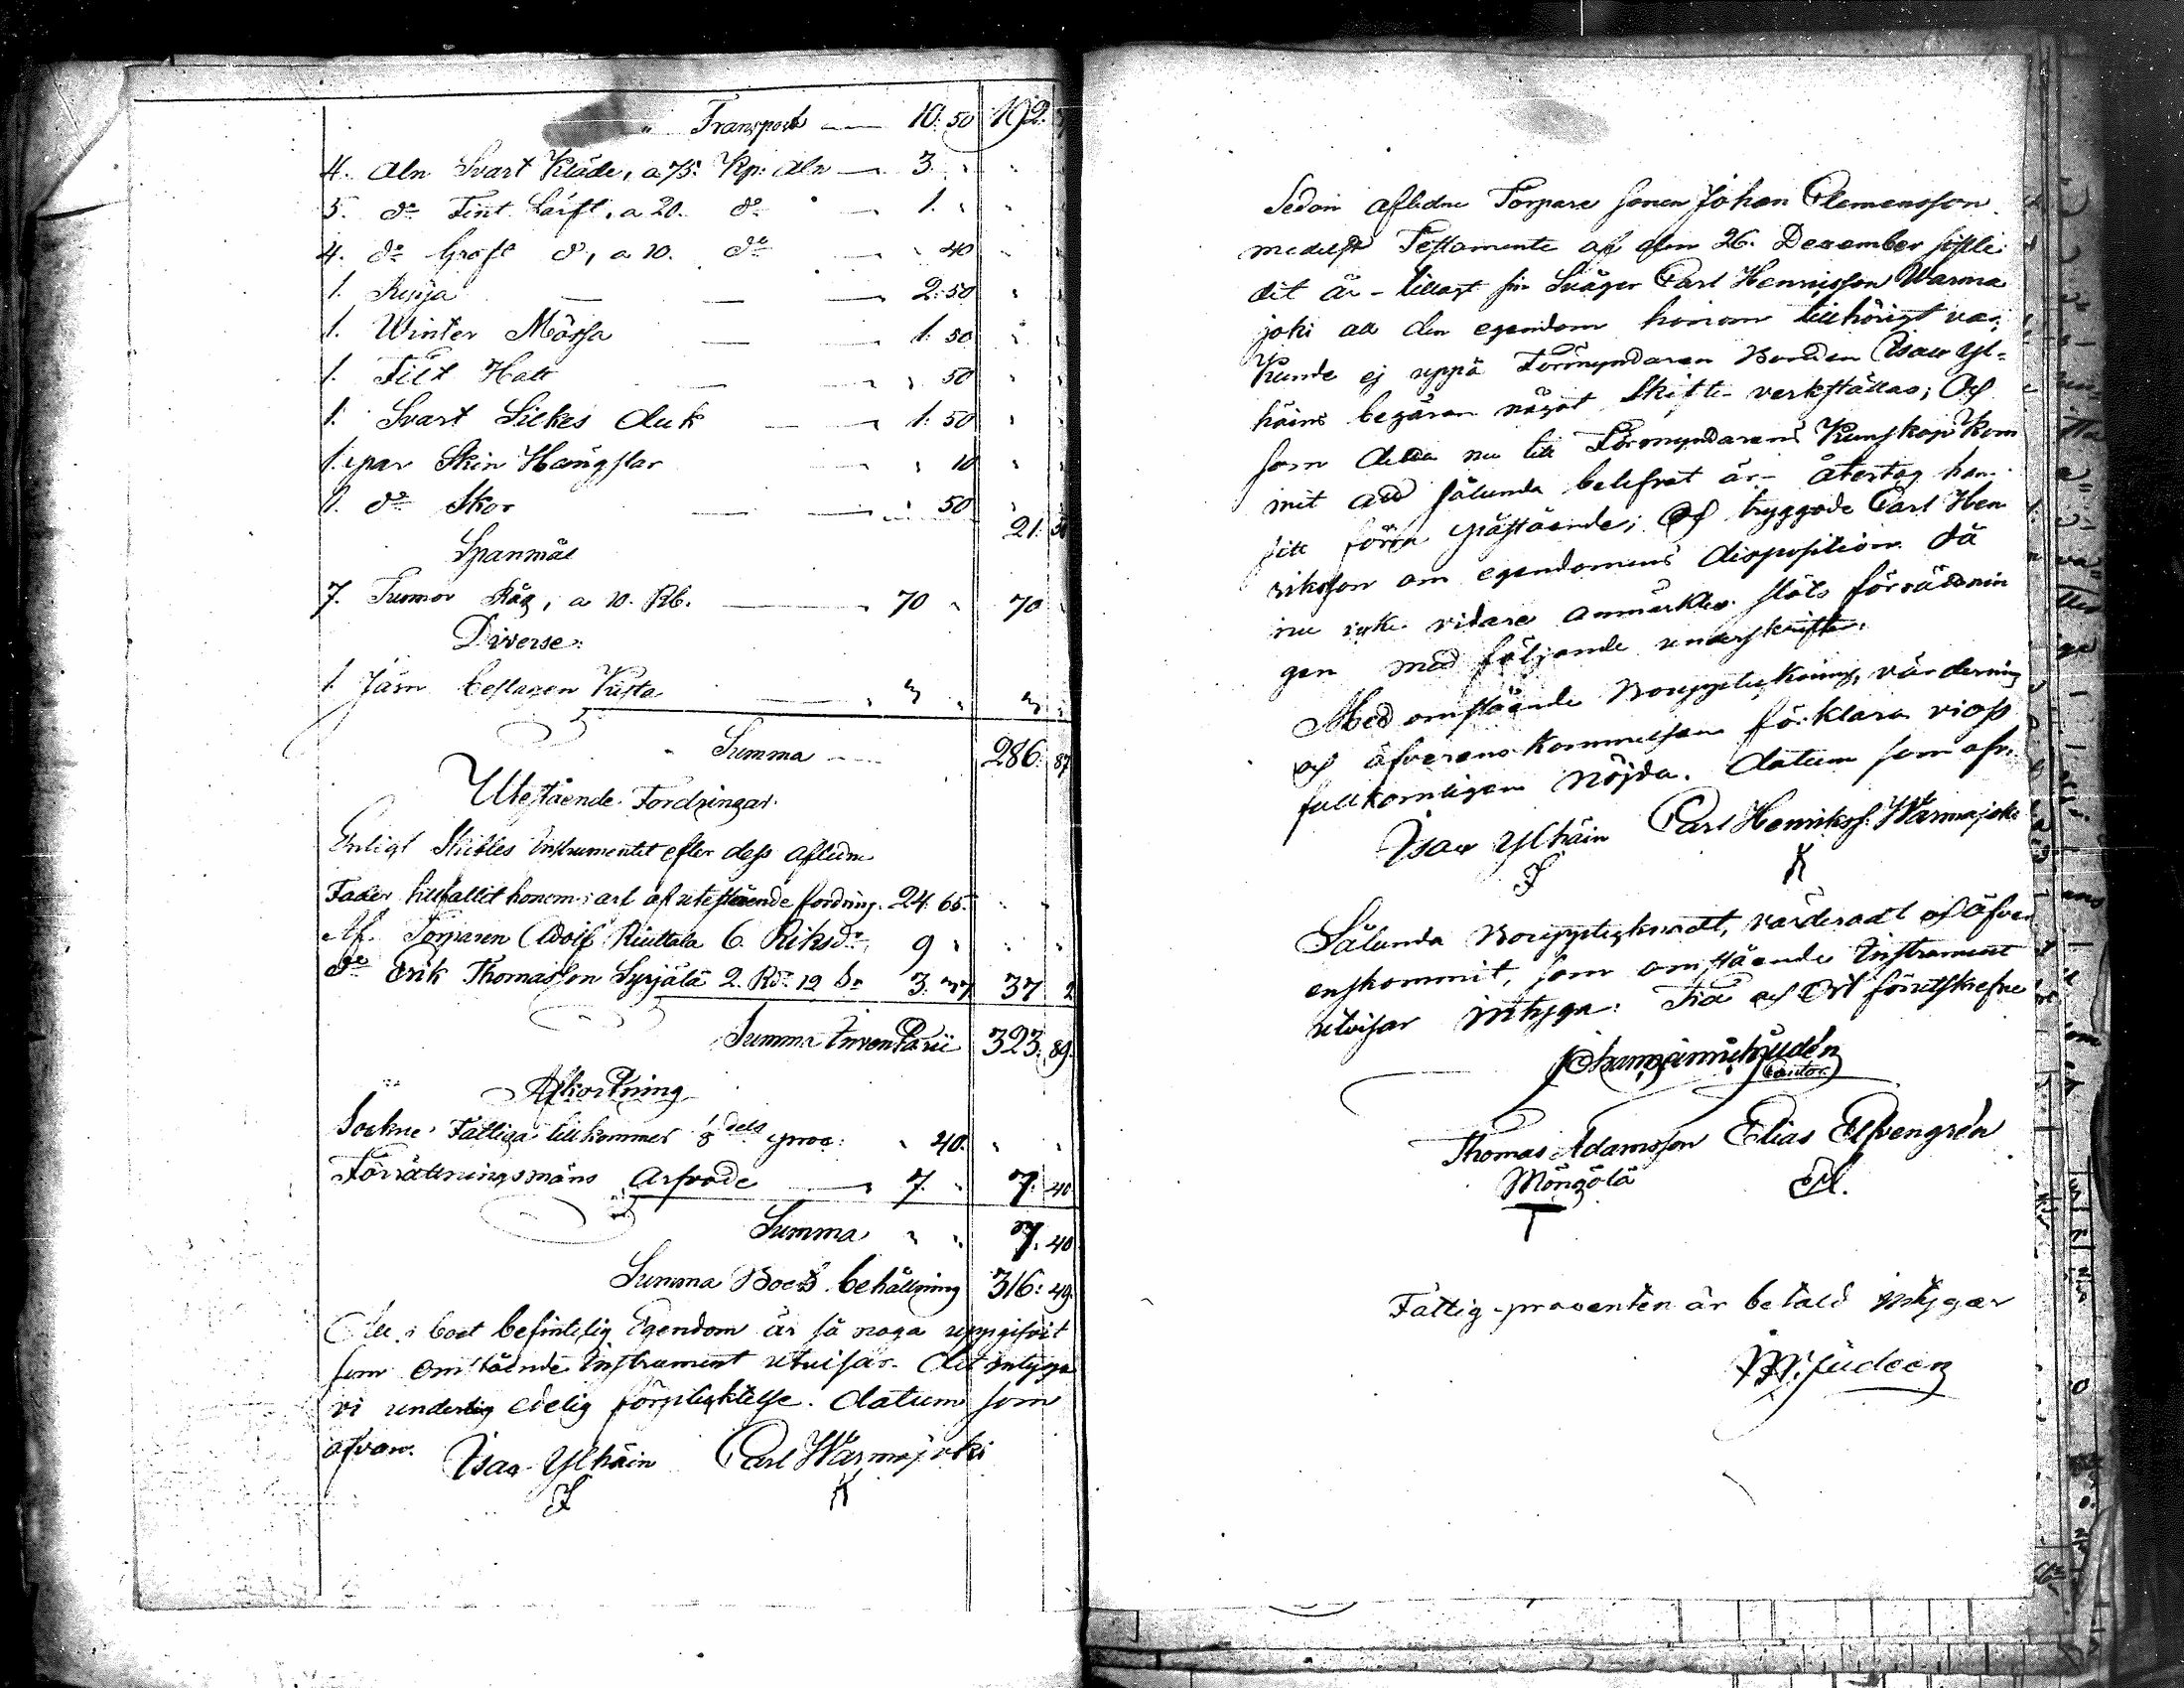 Transport — 10: 50 192:
4. Aln Svart Kläde, a 75: Kp: Aln — 3. "
5. do Fint Lärft, a 20. do — 1. "
4. do Groft do, a 10. do — " 40
1. Rysja — 2: 50
1. Winter Mössa — 1: 50
1. Filt Hatt — " 50
1. Svart Silkes duk — 1: 50
1. par Skin Hangskar — " 10
1. do Skor — " 50 21: 50
Spanmål
7. Tunnor Råg, a 10. Rb. — 70 " 70
Diverse:
1. Järn beslagen Kista — 3 " 3
Summa — 286: 87
Utestående Fordringar.
Enligt Skiftes Instrumentet efter dess aflidne
Fader tillfallit honom i arf af utestående fordring. 24: 65.
Af Torparen Adolf Riuttala 6. Riksdr 9 "
do Erik Thomasson Syrjälä 2. Rdr 12 sr 3: 37 37 2
Summa Inventarii 323: 89.
Afkortning
Sockne Fattiga tillkommer 1/8 dels proc: " 40.
Förrättningsmäns Arfvode — 7. " 7: 40
Summa " " 7. 40
Summa Boets behållning 316: 49.
All i boet befintelig Egendom är så noga uppgifvit
som omstående Instrument utvisar. det intyga
vi under edelig förpligktelse. datum som
ofvan. Isac Ylhäin Carl Warmajoki
Sedan aflidne Torpare sonen Johan Clemensson
medelst Testamente af den 26. December sistli
dit år - tillagt sin Svåger Carl Henricsson Warma
joki all den egendom honom tillhörigt var,
Kunde ej uppå Förmyndaren Bonden Isac Yl-
häins begäran något Skifte verkställas; Och
som detta nu till Förmyndarens Kunskap Kom
mit att sålunda belefrat är - återtog han
sitt förra påstående; Och tryggade Carl Hen
riksson om egendomens disposition. Då
nu icke vidare anmärktes slöts förrättnin
gen med följande underskrifter.
Med omstående Bouppteckning, värdering
och öfverenskommelsen förklara vi oss
fullkomligen nöjda. datum som ofv.
Isac Ylhäin Carl Henrikss. Warmajoki
Sålunda Bouppteknadt, värderadt och öfver
enskommit, som omstående Instrument
utvisar intyga: Tid och Ort förutskrefne
Cantor
Thomas Adamsson Elias Elfvengrén
Möngölä
Fattig-procenten är betald intygar